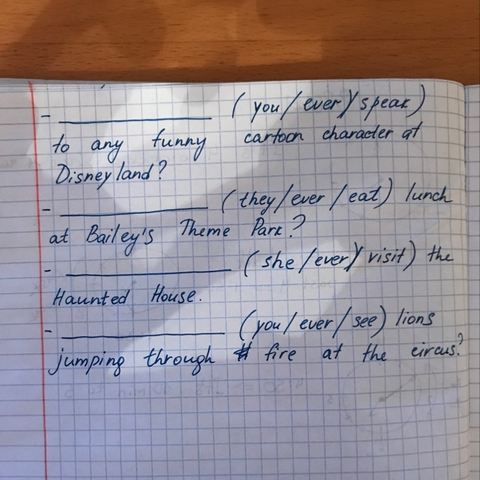 - ____________ (you/ever/speak)
to any funny cartoon character at
Disneyland?
- ____________ (they/ever/eat) lunch
at Bailey's Theme Park?
- ____________ (she/ever/visit) the
Haunted House.
- ____________ (you/ever/see) lions
jumping through fire at the circus?